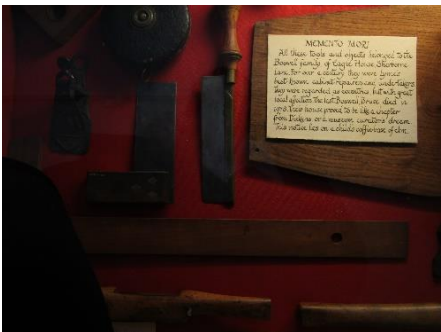 MEMENTO MORI
All these tools and objects belonged to the
Boswell family of Eagle House, Sherborne
Lane. For over a century they were Lyme's
best known cabinet repairers and undertakers
They were regarded as eccentrics but with great
local affection. The last Boswell, Bruce died in
1978. Their house proved to be like a chapter
from Dickens and a museum curators' dream.
This notice lies on a child's coffin-base of elm.